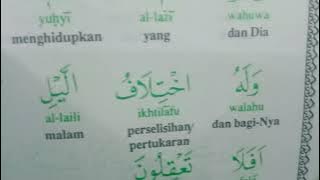 yuḥyī al-lażī wahuwa
menghidupkan yang dan Dia
وَلَهُ اخْتِلَافُ الَّيْلِ
al-laili ikhtilāfu walahu
malam perselisihan/ dan bagi-Nya
pertukaran
اَفَلَا تَعْقِلُوْنَ